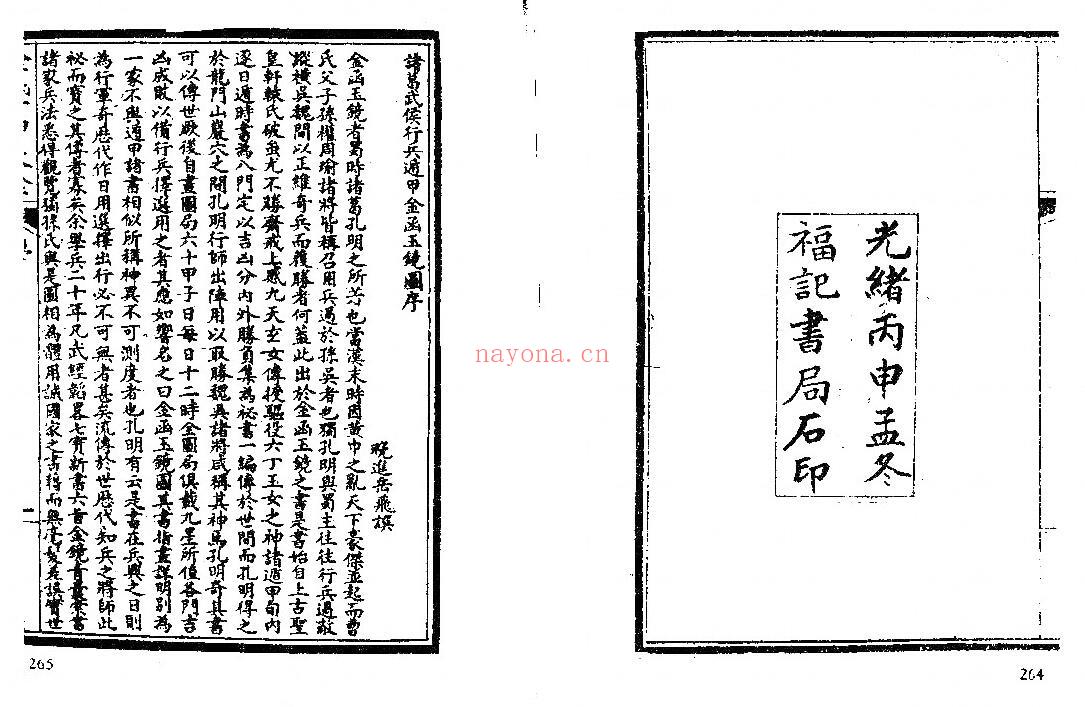 光緒丙申孟冬
福記書局石印
264
諸葛武侯行兵遁甲金函玉鏡圖序
晚進岳飛譔
金函玉鏡者蜀時諸葛孔明之所作也當漢末時因黃巾之亂天下豪傑並起而曹
氏父子孫權周瑜諸將皆稱召用兵過於孫吳者也獨孔明與蜀主往往行兵遇敵
縱橫吳魏間以正維奇兵而獲勝者何蓋此出於金函玉鏡之書是書始自上古聖
皇軒轅氏破蚩尤不勝齋戒上感九天玄女傳授驅役六丁玉女之神諸遁甲旬內
逐日遁時書為八門定以吉凶分內外勝負集為祕書一編傳於世間而孔明得之
於龍門山巖穴之間孔明行師出陣用以取勝魏吳諸將咸稱其神焉孔明奇其書
可以傳世厥後自畫圖局六十甲子日每日十二時全圖局俱載九星所值各門吉
凶成敗以備行兵擇選用之者其應如響名之曰金函玉鏡圖其書指畫詳明別為
一家不與遁甲諸書相似所稱神異不可測度者也孔明有云是書在兵興之日則
為行軍奇歷代作日用選擇出行必不可無者甚矣流傳於世歷代知兵之將師此
祕而寶之其傳者寡矣余學兵二十年凡武經韜畧七寶新書六
諸家兵法悉得觀覽獨孫氏與是圖相為體用誠國家之書得而無毫髮差誤實世
265
nayona.cn